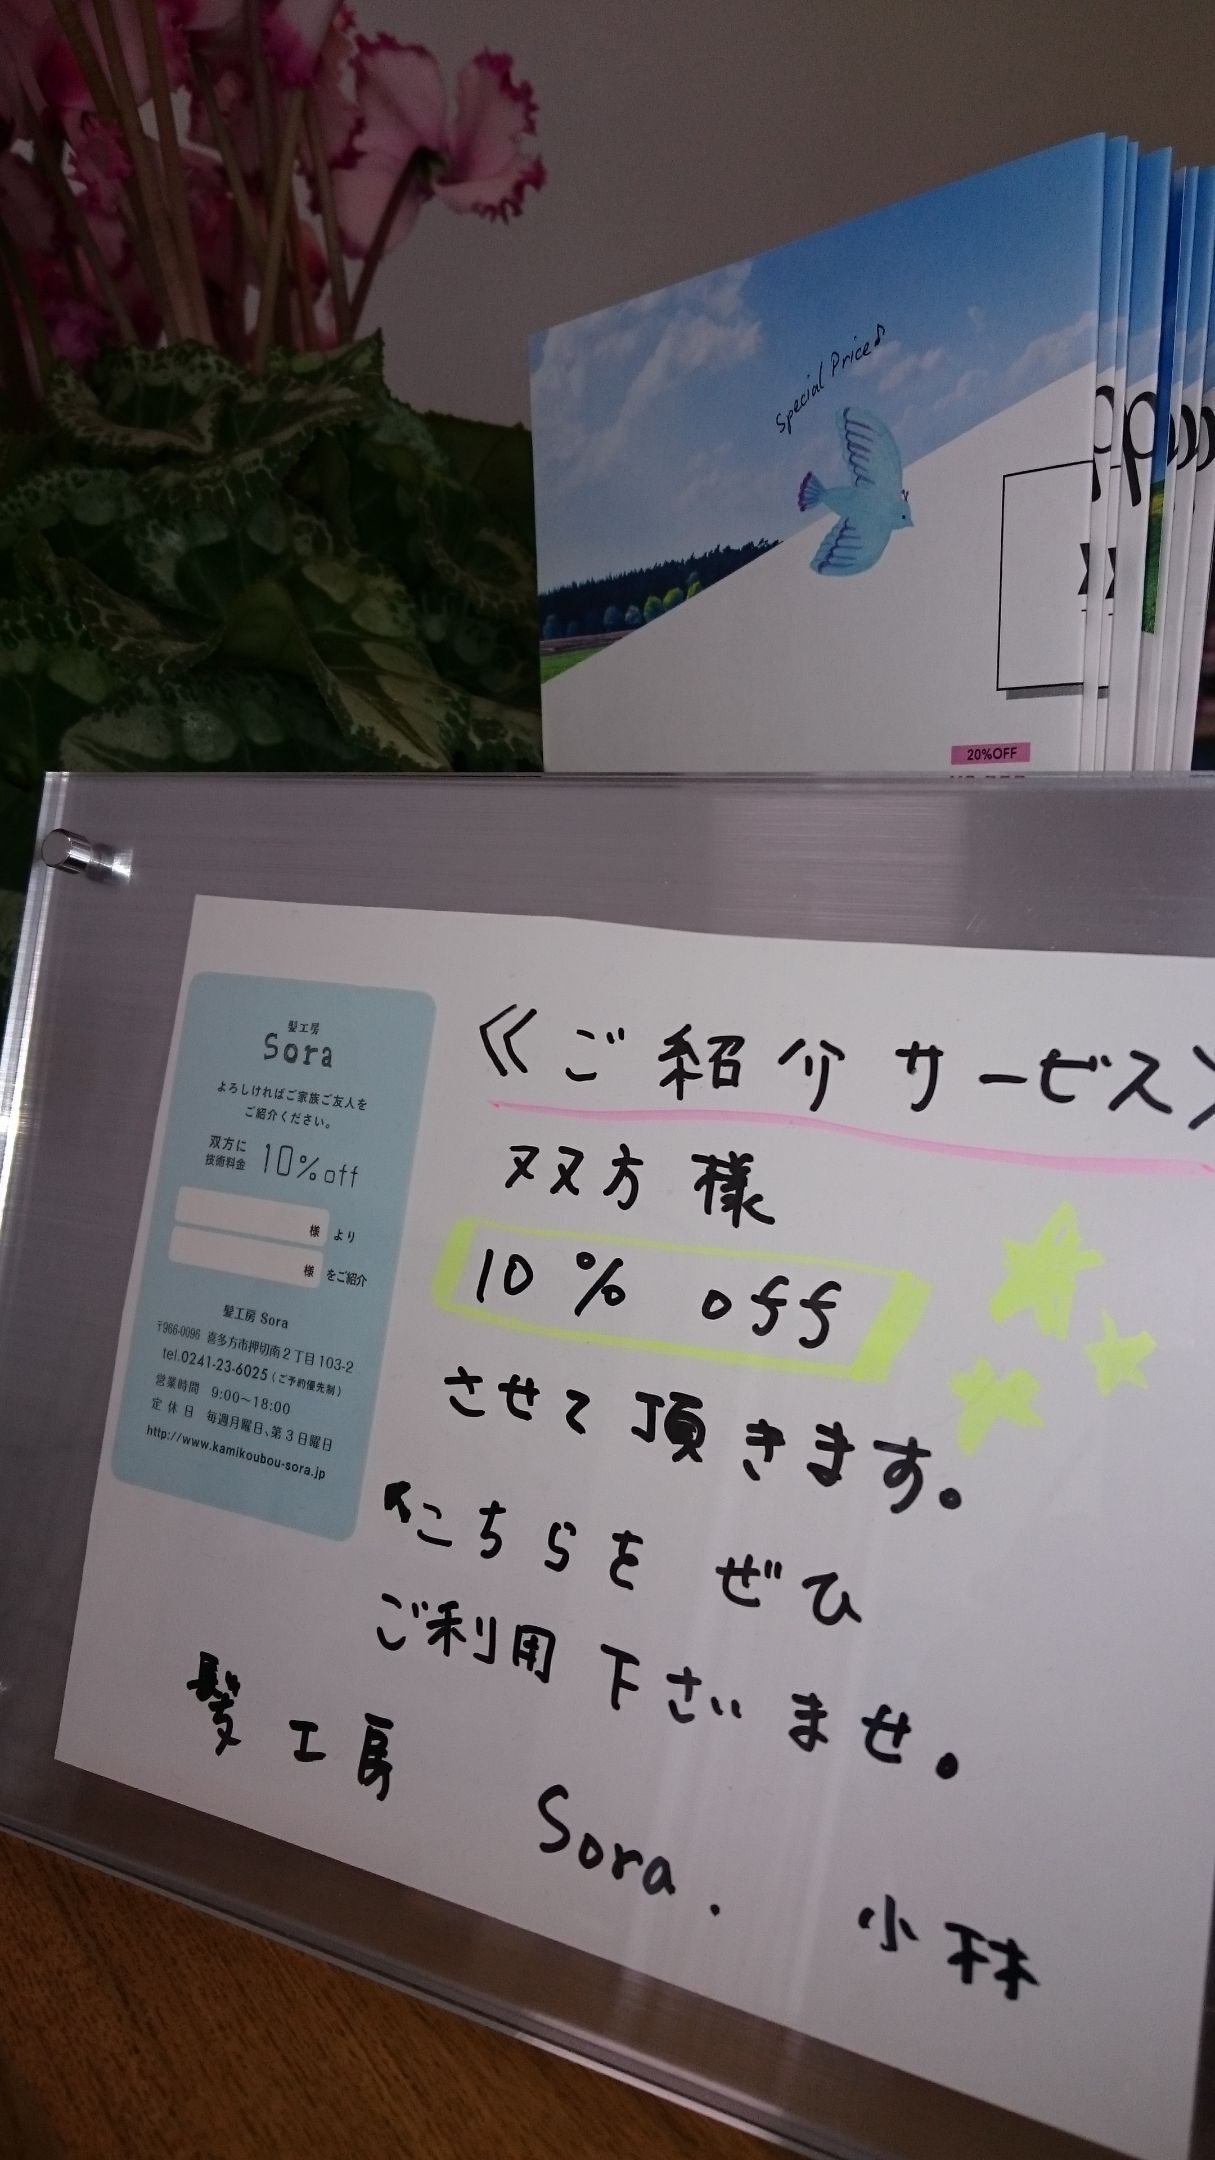 Special Price♪
20%OFF
髪工房
Sora
よろしければご家族ご友人を
ご紹介ください。
双方に
技術料金 10%off
様 より
様 をご紹介
髪工房 Sora
〒966-0096 喜多方市押切南2丁目103-2
tel.0241-23-6025（ご予約優先制）
営業時間 9:00〜18:00
定休日 毎週月曜日、第3日曜日
http://www.kamikoubou-sora.jp
《ご紹介サービス》
双方様
10% off
させて頂きます。
↖こちらを ぜひ
ご利用 下さいませ。
髪工房 Sora. 小林